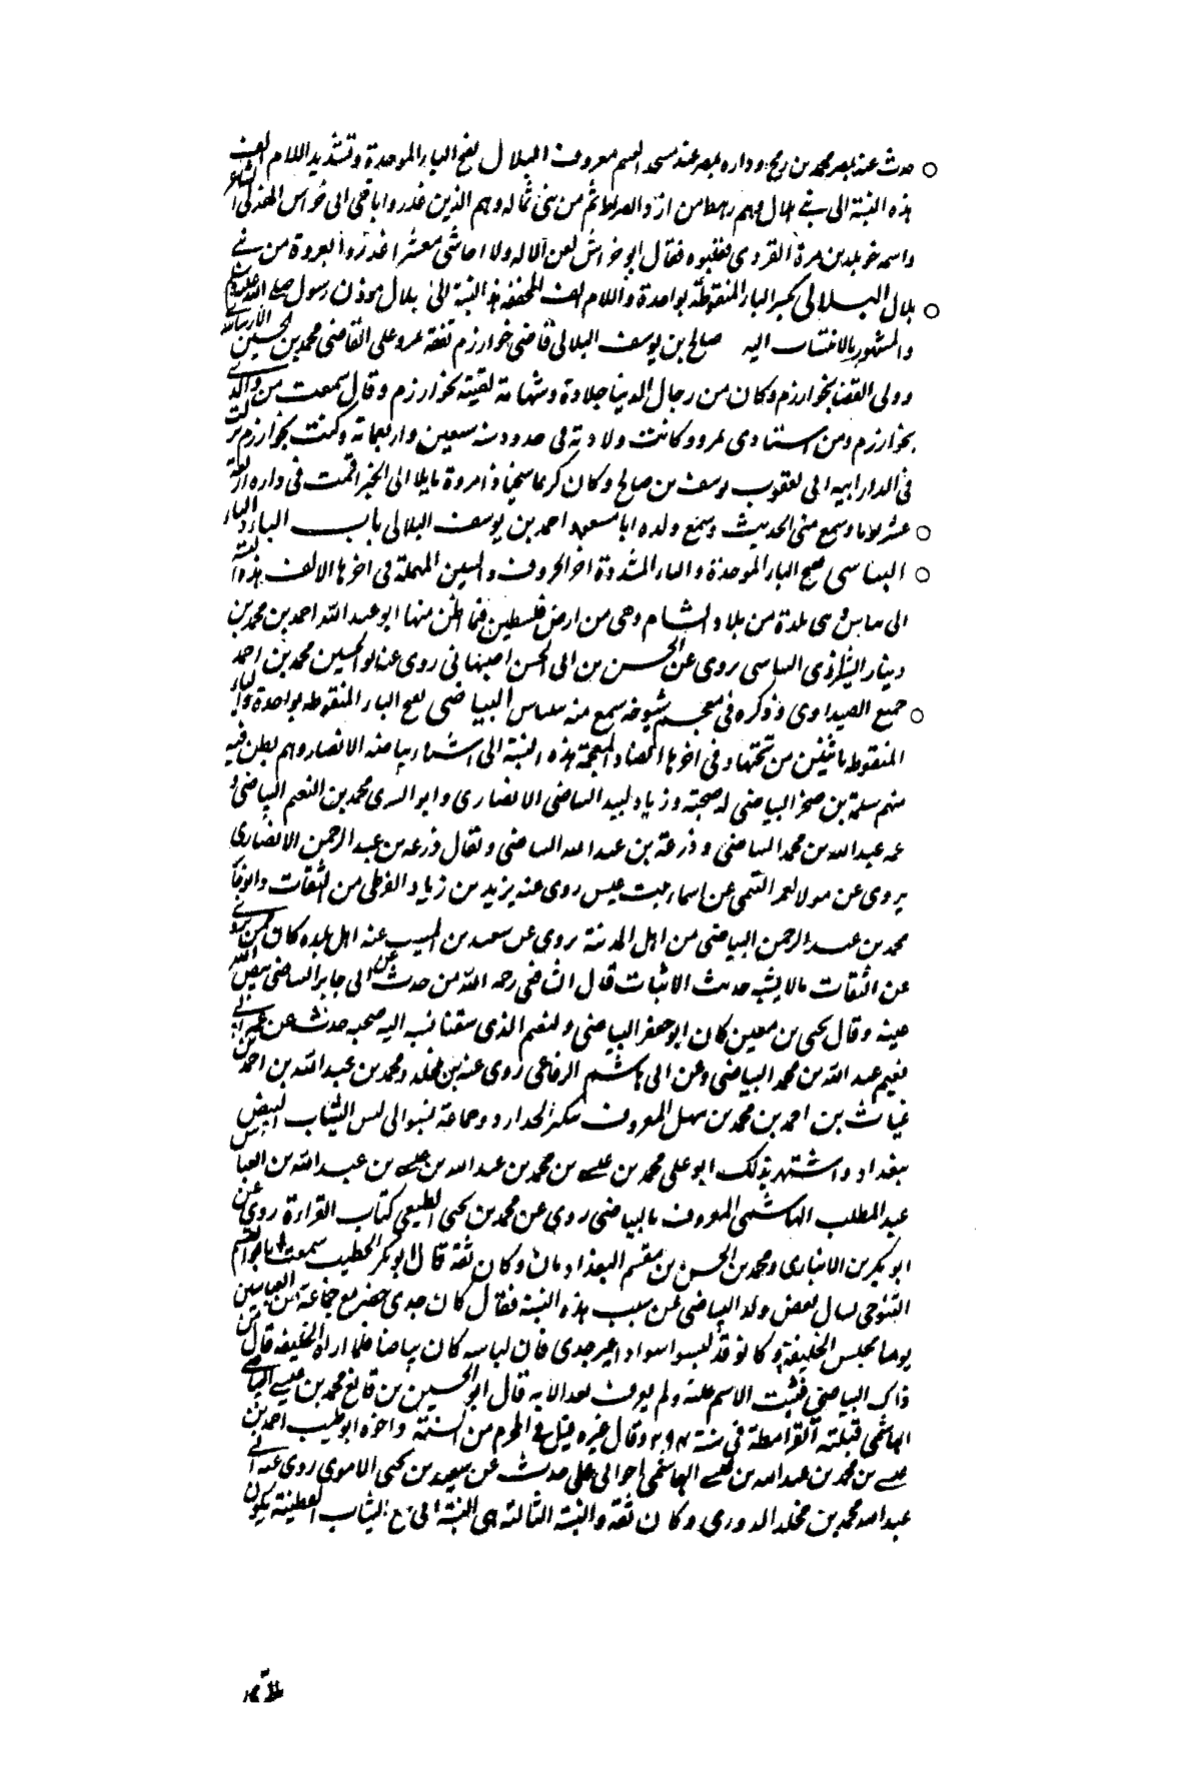 حدث عنه بمصر محمد بن ريح وداره بمصر عند مسجد القسم معروف البلال بفتح الباء الموحدة وتشديد اللام الف
هذه النسبة الى بني بلال وهم رهط من ازد السراة ثم من بني ثمالة وهم الذين غدروا باخي ابي خراش الهذلي الشاعر
واسمه خويلد بن مرة القردى فقتلوه فقال ابو خراش لعن الاله ولا احاشى معشرا غدروا بعروة من بني
بلال البلالى بكسر الباء المنقوطة بواحدة واللام الف المخففة هذه النسبة الى بلال موذن رسول الله صلى الله عليه وسلم
والمشهور بالانتساب اليه صالح بن يوسف البلالى قاضى خوارزم تفقه بمرو على القاضى محمد بن الحسين الارسابندى
وولى القضا بخوارزم وكان من رجال الدنيا جلادة وشهامة لقيته بخوارزم وقال سمعت من والدك
بخوارزم ومن استاذى بمرو وكانت ولادته فى حدود سنة سبعين واربعماية وكنت بخوارزم نزلت
فى الدار ابنه ابى يعقوب يوسف بن صالح وكان كريما سخيا ذا مروة مايلا الى الخير اقمت فى داره اربعة
عشر يوما وسمع منى الحديث وسمع ولده ابا مسعود احمد بن يوسف البلالى باب الباء والياء
البياسى بفتح الباء الموحدة والياء المشددة اخر الحروف والسين المهملة فى اخرها الالف هذه النسبة
الى بياس وهى بلدة من بلاد الشام وهى من ارض فلسطين فيما اظن منها ابو عبد الله احمد بن محمد بن
دينار الشيرازى البياسى يروى عن الحسن بن ابى الحسن اصبهانى روى عنه ابو الحسين محمد بن احمد
جميع الصيداوى وذكره فى معجم شيوخه سمع منه ببياس البياضى بفتح الباء المنقوطة بواحدة والياء
المنقوطة باثنين من تحتها وفى اخرها الضاد المعجمة هذه النسبة الى اشياء بياضة الانصار وهم بطن فيه
منهم سلمة بن صخر البياضى له صحبة وزياد لبيد البياضى الانصارى وابو السرى محمد بن النعيم البياضى و
عمه عبد الله بن محمد البياضى وزرعة بن عبد الله البياضى ويقال زرعة بن عبد الرحمن الانصارى
يروى عن مولا لمعمر التيمى عن اسماء بنت عميس روى عنه يزيد بن زياد القرظى من الثقات وابو جابر
محمد بن عبد الرحمن البياضى من اهل المدينة يروى عن سعيد بن المسيب عنه اهل بلده كان ممن يروى
عن الثقات مالا يشبه حديث الاثبات قال الشافعى رحمه الله من حدث عن ابى جابر البياضى بيض الله
عينه وقال يحيى بن معين كان ابو جعفر البياضى والنعيم الذى سقنا نسبه اليه صحبه حدث عن عمه ابى
نعيم عبد الله بن محمد البياضى وعن ابى هاشم الرفاعى روى عنه بن مخلد ومحمد بن عبد الله بن احمد بن
غياث بن احمد بن محمد بن سهل المعروف بكير الحدارد وجماعة نسبوا الى لبس الثياب البيض
ببغداد واشتهر بذلك ابو على محمد بن عيسى بن محمد بن عبد الله بن عيسى بن عبد الله بن العباس بن
عبد المطلب الهاشمى المعروف بالبياضى روى عن محمد بن يحيى القطيعى كتاب القراءة روى عنه
ابو بكر بن الانبارى ومحمد بن الحسن بن مقسم البغداديان وكان ثقة قال ابو بكر الخطيب سمعت ابا القسم
التنوخى يسال بعض ولد البياضى عن سبب هذه النسبة فقال كان جدى حضر مع جماعة من العباسيين
يوما مجلس الخليفة وكانوا قد لبسوا سوادا غير جدى فان لباسه كان بياضا فلما اراه الخليفة قال من
ذاك البياضى فثبت الاسم عليه ولم يعرف بعد الا به قال ابو الحسين بن قانع محمد بن عيسى البياضى
الهاشمى قتلته القرامطة فى سنة ٢٩٤ وقال غيره قتل فى المحرم من السنة واخوه ابو طيب احمد بن
عيسى بن محمد بن عبد الله بن عيسى الهاشمى اخو ابى على حدث عن سعيد بن يحيى الاموى روى عنه ابى
عبد الله محمد بن مخلد الدورى وكان ثقة والنسبة الثالثة هى النسبة الى بيع الثياب القطنية يكون